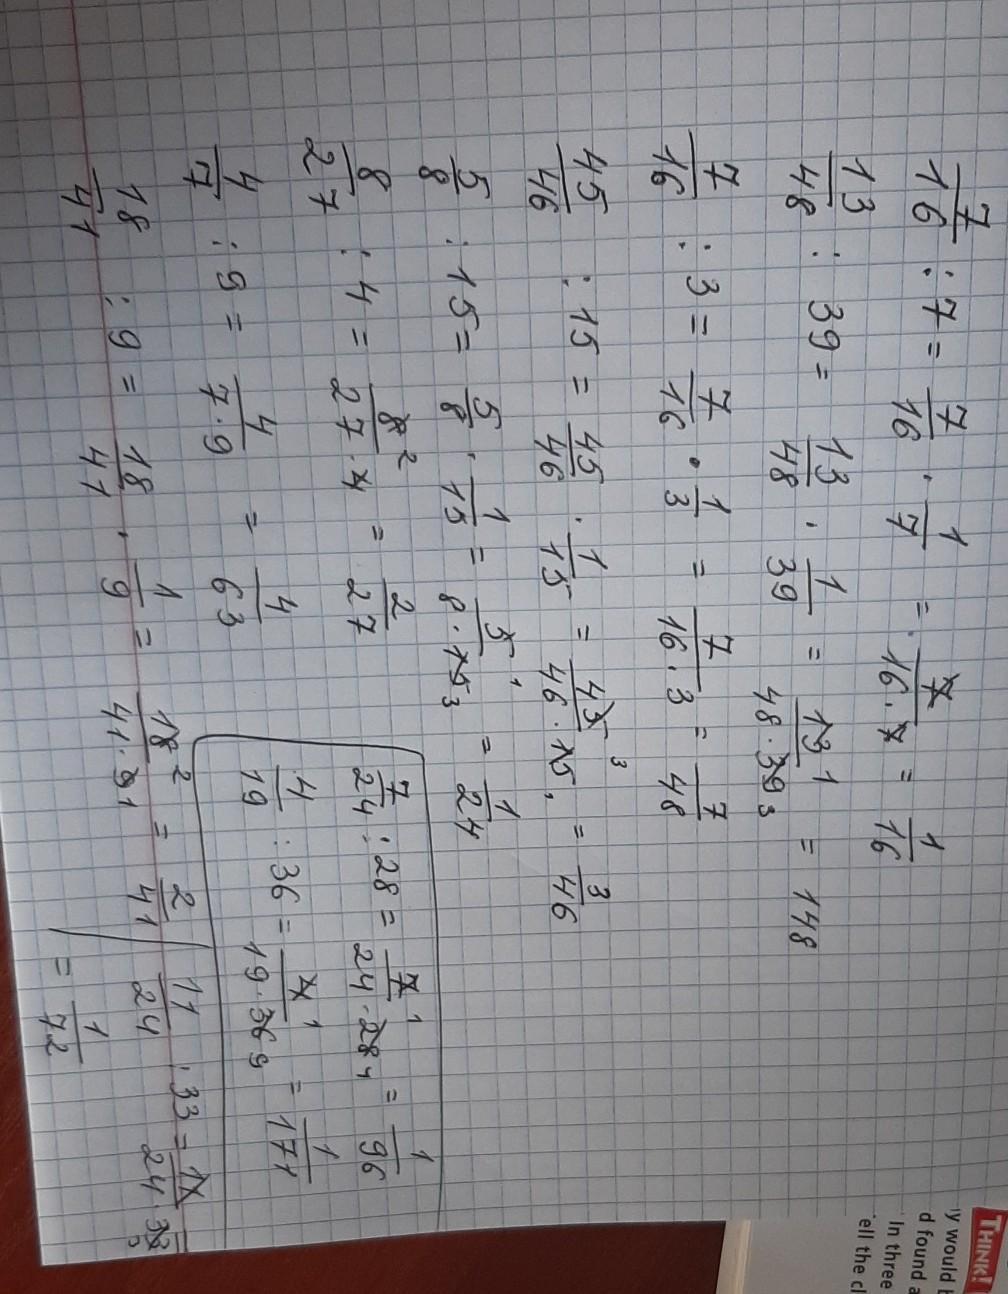 7/16 : 7 = 7/16 · 1/7 = 7/16·7 = 1/16
13/48 : 39 = 13/48 · 1/39 = 13 1/48·39 3 = 148
7/16 : 3 = 7/16 · 1/3 = 7/16·3 = 7/48
45/46 : 15 = 45/46 · 1/15 = 45 3/46·15 1 = 3/46
5/8 : 15 = 5/8 · 1/15 = 5 1/8·15 3 = 1/24
8/27 : 4 = 8 2/27·4 = 2/27
4/7 : 9 = 4/7·9 = 4/63
18/41 : 9 = 18/41 · 1/9 = 18 2/41·9 1 = 2/41
7/24 : 28 = 7 1/24·28 4 = 1/96
4/19 : 36 = 4 1/19·36 9 = 1/171
11/24 : 33 = 11/24·33 3
= 1/72
THINK!
y would
d found a
In three
ell the cl